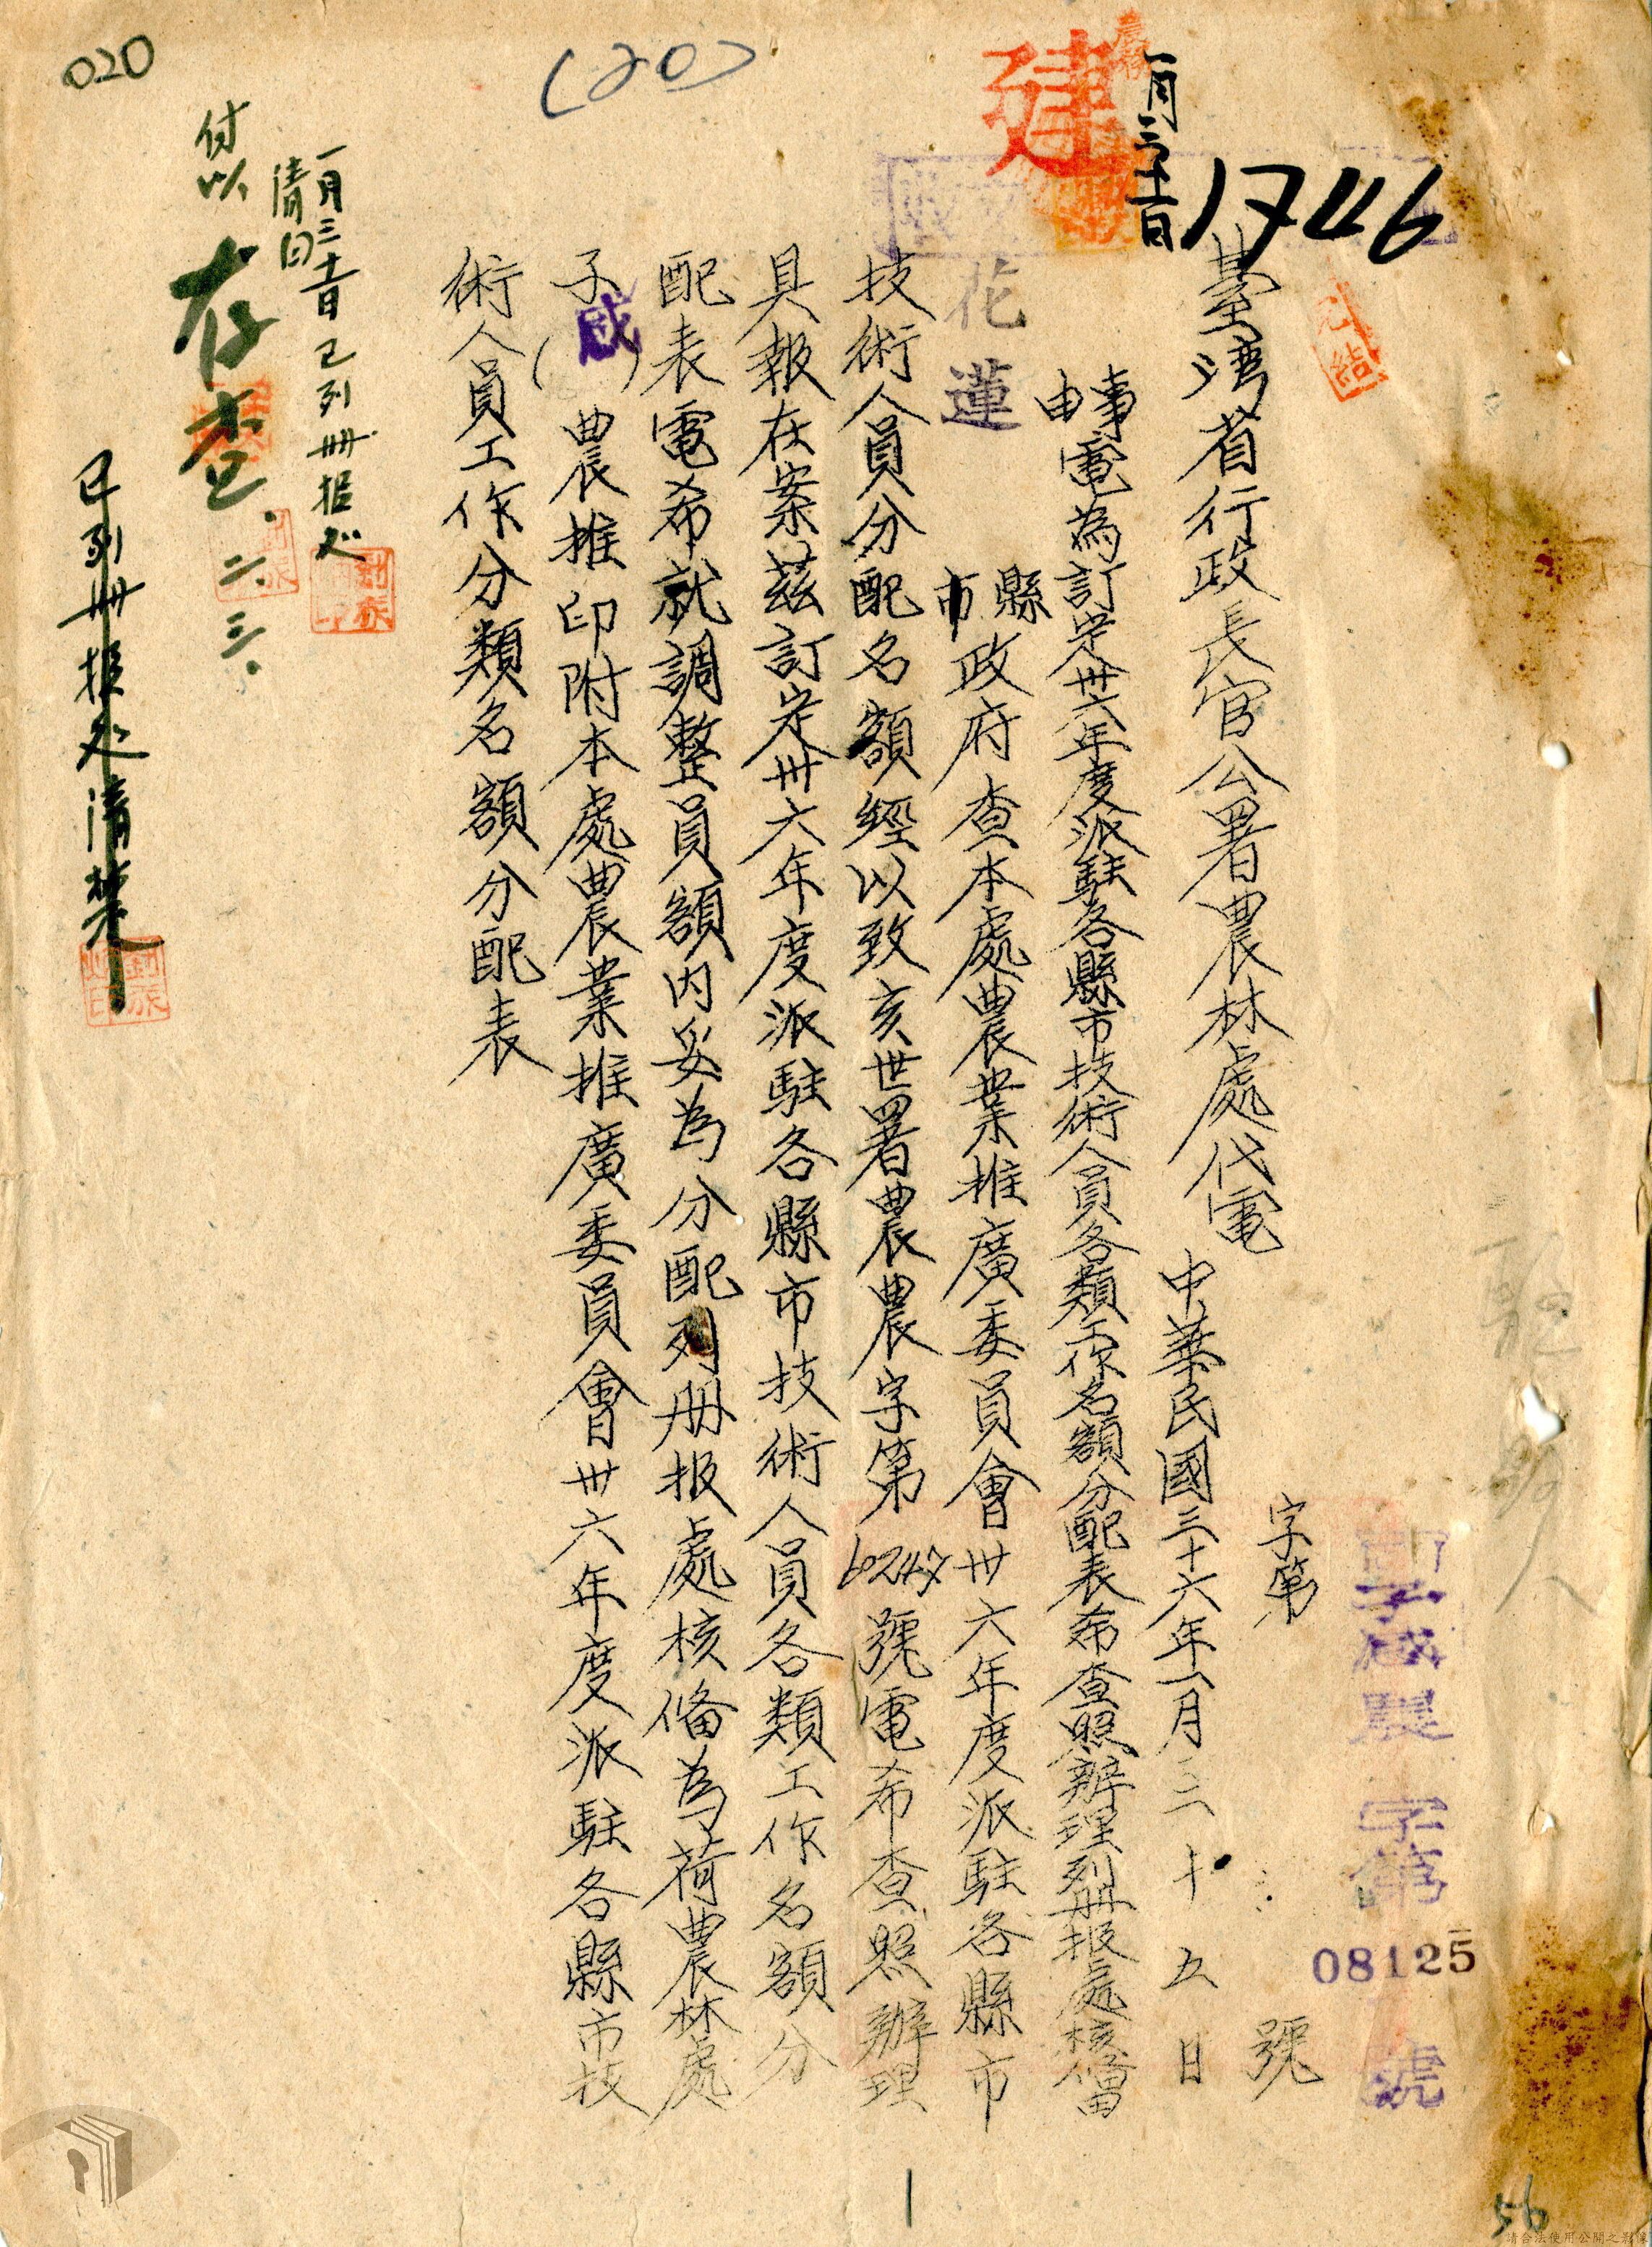 020
(20)
建
一月三十一日
1746
已結
字第　號
字第
08125
號
臺灣省行政長官公署農林處代電
中華民國三十六年一月二十五日
事由
電為訂定卅六年度派駐各縣市技術人員各類工作名額分配表希查照辦理列册报處核備
花蓮
縣市政府查本處農業推廣委員會卅六年度派駐各縣市
技術人員分配名額經以致亥世署農農字第60247號電希查照辦理
具報在案茲訂定卅六年度派駐各縣市技術人員各類工作名額分
配表電希就調整員額内妥為分配列册报處核備為荷農林處
子(咸)農推印附本處農業推廣委員會卅六年度派駐各縣市技
術人員工作分類名額分配表
已列冊报处
付以
存查
二、三、
已列冊报处清楚
1
56
請合法使用公開之影像